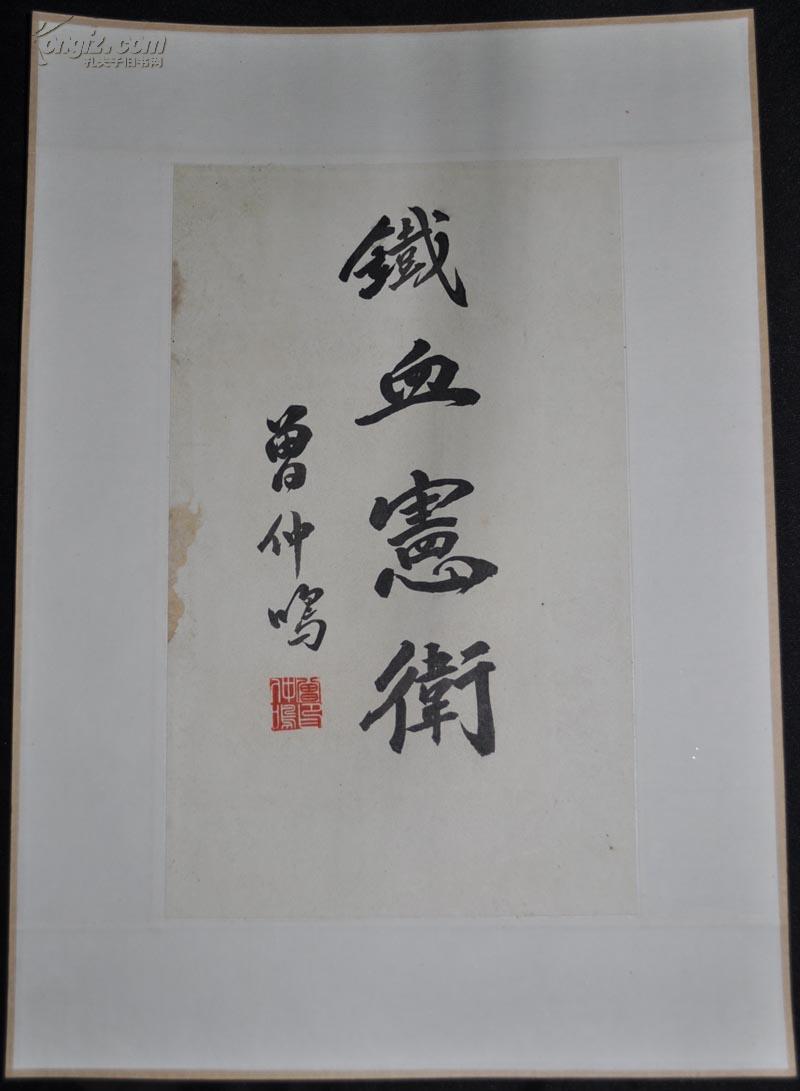 鐵血憲衛
曾仲鳴
曾仲鳴印
Kongfz.com
孔夫子旧书网